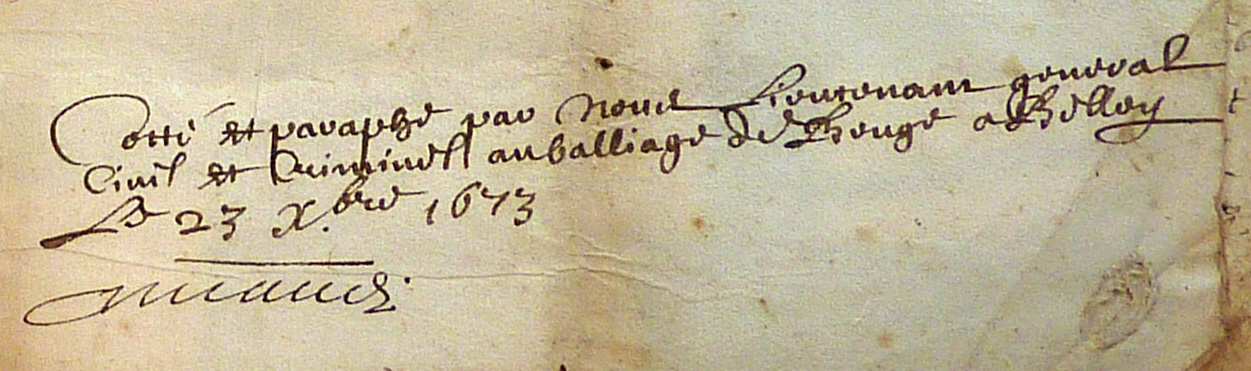 Cotté et paraphé par Nous Lieutenant general
Civil et Criminel au balliage de Beugé a Belley
Le 23 Xbre 1673